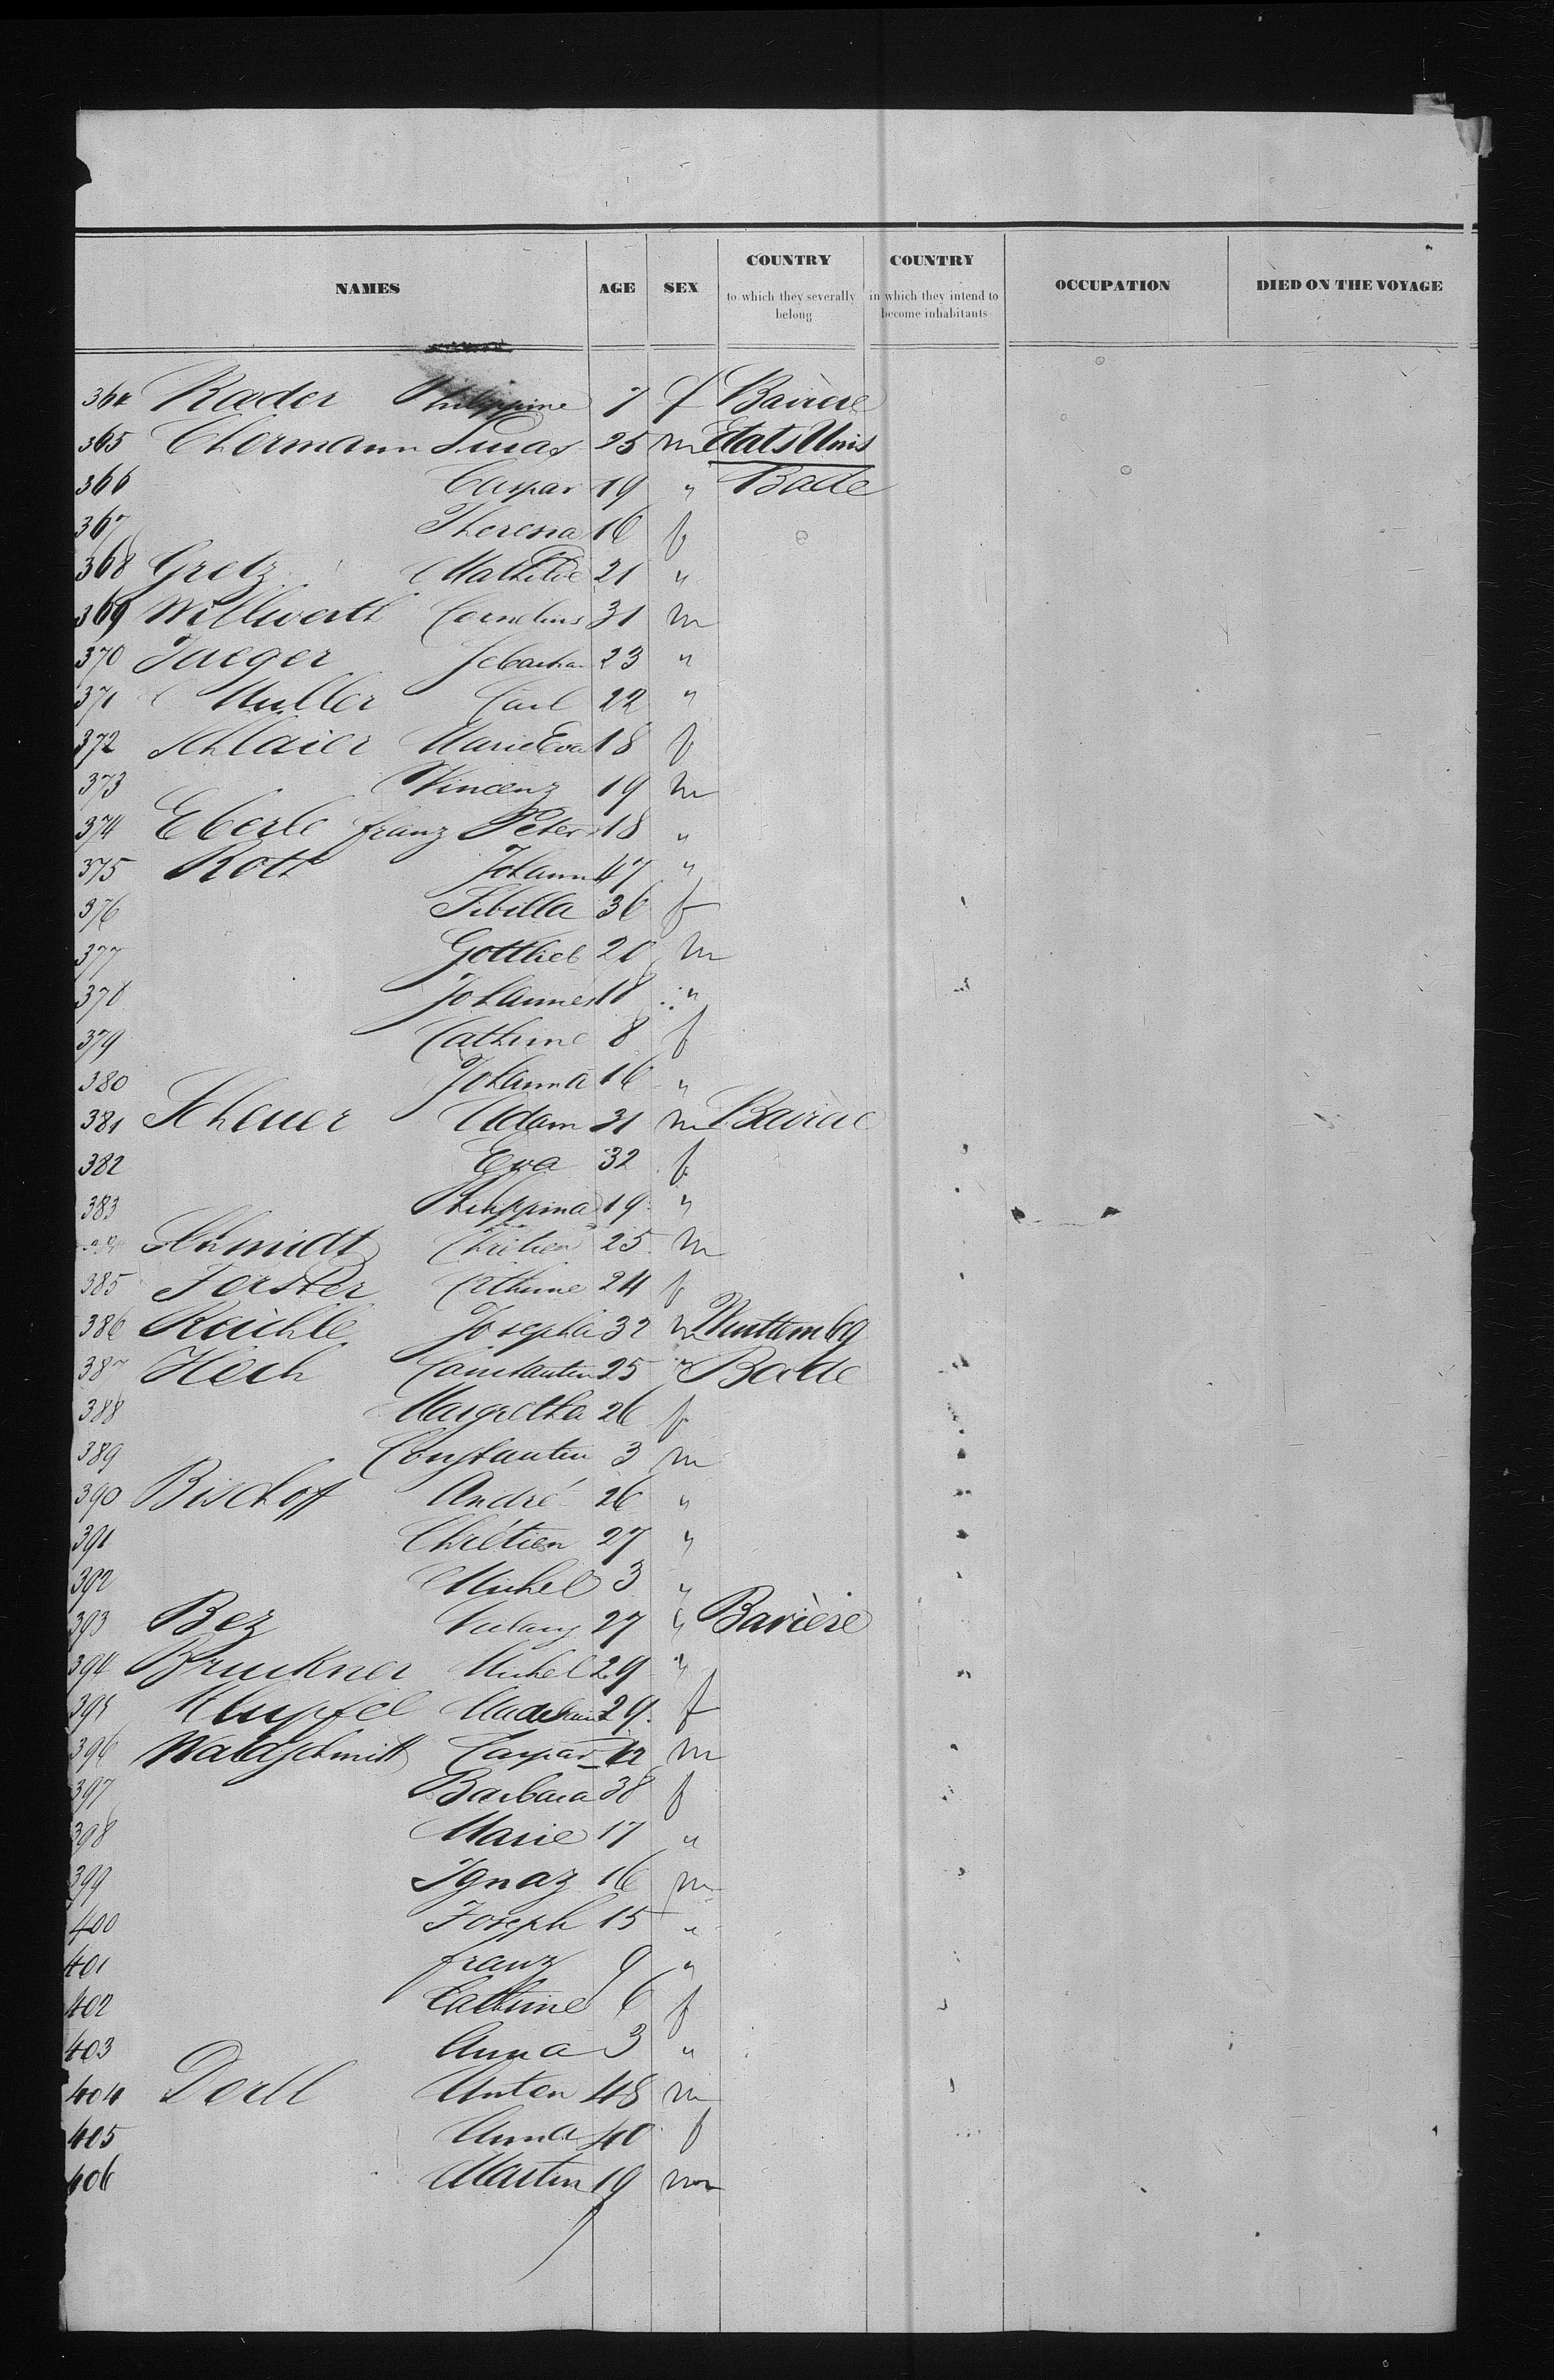 NAMES AGE SEX COUNTRY to which they severally belong COUNTRY in which they intend to become inhabitants OCCUPATION DIED ON THE VOYAGE
364 Rader Philippine 7 f Bavière
365 Ehrmann Lucas 25 m Etats Unis
366 Caspar 19 " Bade
367 Theresia 16 f
368 Gretz Mathilde 21 "
369 Willwerth Cornelius 31 m
370 Jaeger Sebastian 23 "
371 Muller Carl 22 "
372 Schlaier Marie Eva 18 f
373 Vincenz 19 m
374 Eberle franz Peter 18 "
375 Roth Johann 47 "
376 Sibilla 36 f
377 Gottlieb 20 m
378 Johannes 18 "
379 Cathrine 8 f
380 Johanna 16 "
381 Scheuer Adam 31 m Bavière
382 Eva 32 f
383 Philippina 19 "
Schmidt Chrétien 25 m
385 Forster Cathrine 24 f
386 Kaichle Joseph 32 m Wurttembg
387 Hech Constantin 25 " Bade
388 Margretha 26 f
389 Constantin 3 m
390 Bischoff André 26 "
391 Chrétien 27 "
392 Michel 3 "
393 Bez 27 " Bavière
394 Bruckner Michel 29 "
395 Klupfel Madelaine 29 f
396 Waldschmitt Caspar 42 m
397 Barbara 38 f
398 Marie 17 "
399 Ignaz 16 m
400 Joseph 15 "
401 franz 9 "
402 Cathrine 6 f
403 Anna 3 "
404 Doell Anton 48 m
405 Anna 40 f
406 Martin 19 m